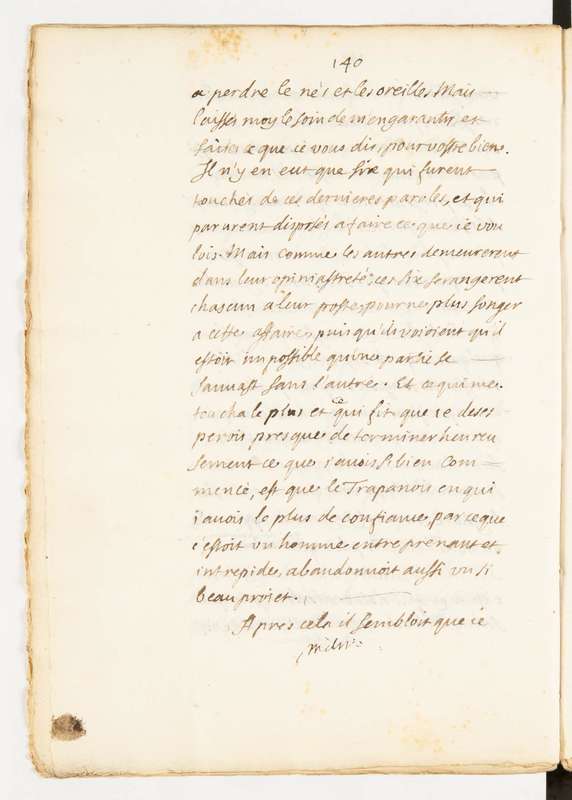 140
a perdre le nés et les oreilles Mais
laissés moy le soin de m'en garantir, et
faites ce que ie vous dis, pour vostre bien.
Il n'y en eut que six qui furent
touchés de ces dernieres paroles, et qui
parurent disposés a faire ce que ie vou
lois. Mais comme les autres demeurerent
dans leur opiniastreté, ces six se rangerent
chascun a leur poste, pour ne plus songer
a cette affaire, puis qu'ils voioient qu'il
estoit impossible qu'une partie se
sauvast sans l'autre. Et ce qui me
toucha le plus et ce qui fit que ie deses
perois presque de terminer heureu
sement ce que i'avois si bien com=
mencé, est que le Trapanois en qui
i'avois le plus de confiance parceque
c'estoit un homme entreprenant et
intrepide, abandonnoit aussi un si
beau proiet.
Apres cela il sembloit que ie